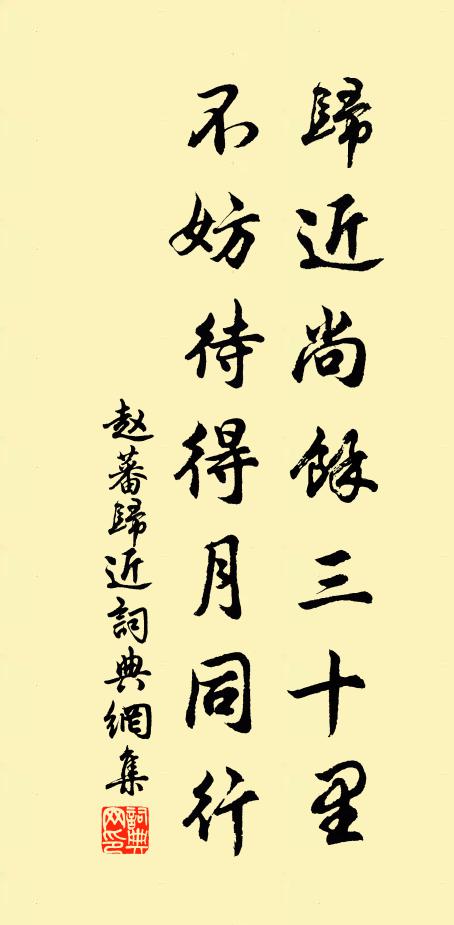 歸近尚餘三十里
不妨待得月同行
赵蕃歸近詞典網集
詞典
网印